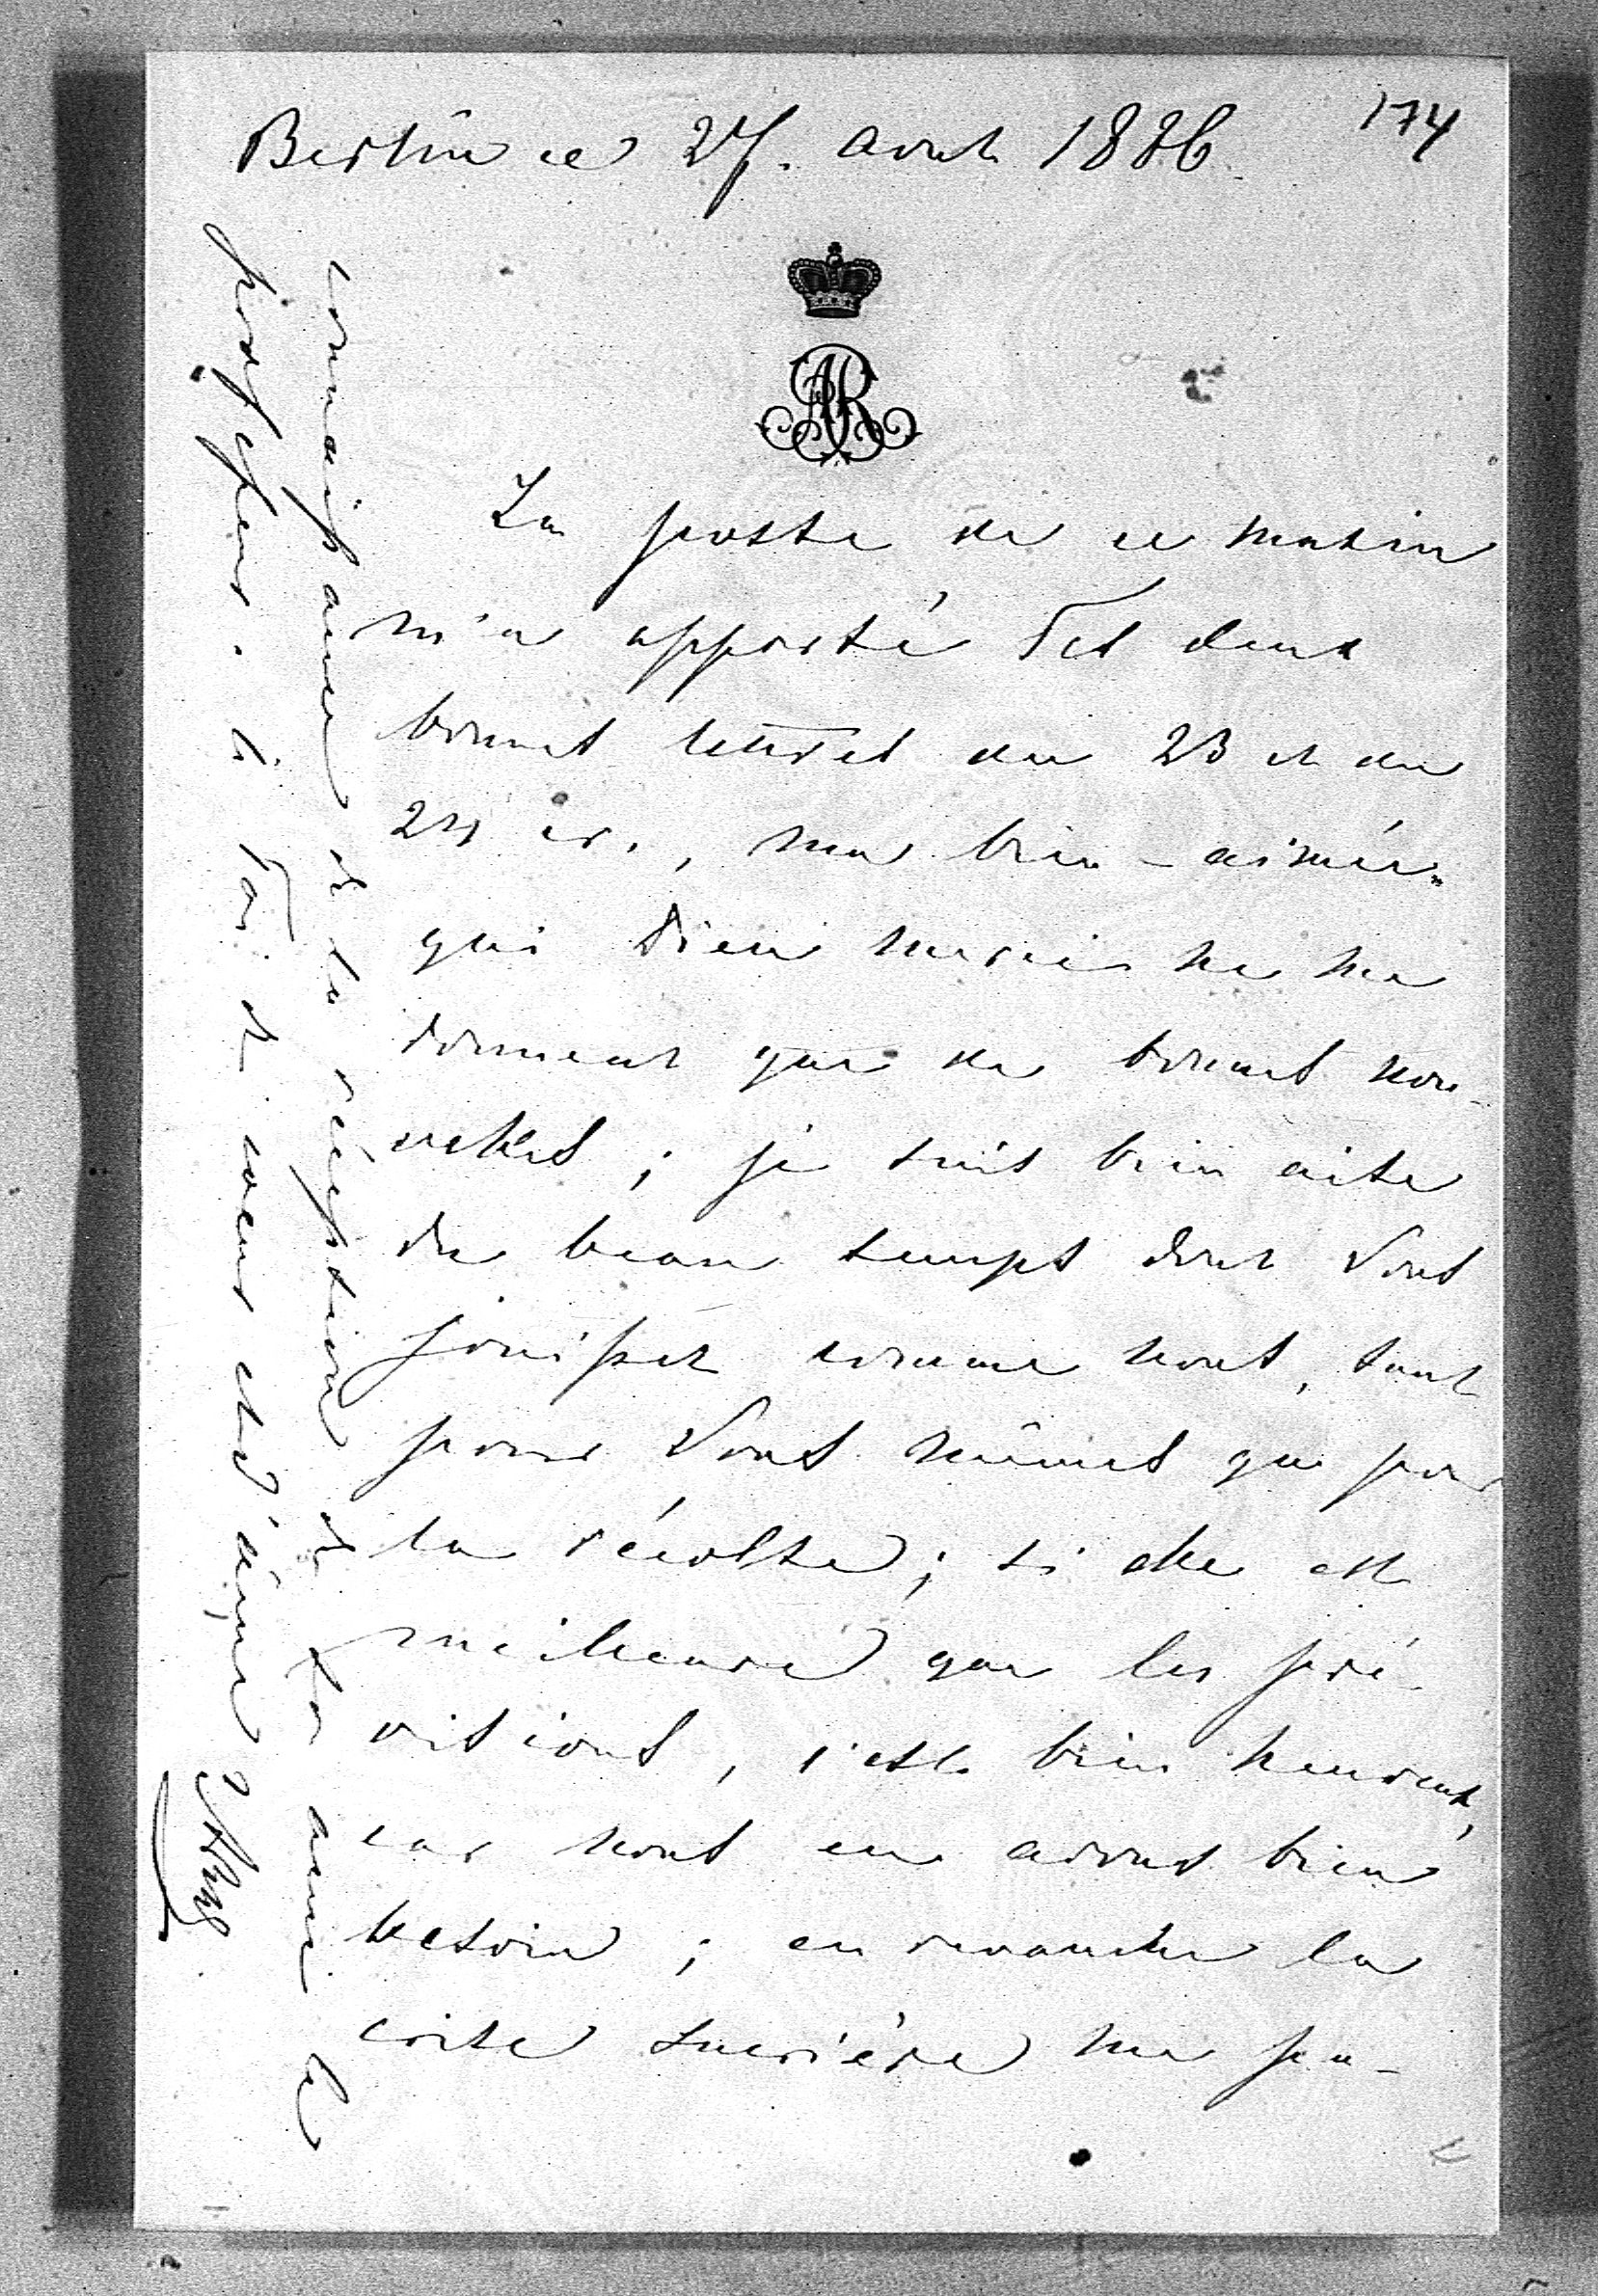 174
Berlin ce 27. août 1886.
AR
La poste de ce matin
m'a apporté Tes deux
bonnes lettres du 23 et du
24 cr., ma bien-aimée
qui Dieu merci ne me
donnent que de bonnes nou-
velles; je suis bien aise
du beau temps dont Vous
jouissez comme nous, tant
pour Vous mêmes que pour
la récolte; si elle est
meilleure que les pré-
visions, c'est bien heureux,
car nous en avons bien
besoin; en revanche la
crise sucrière me pa-
connaissance de la réception de
à Toi de coeur et d'âme